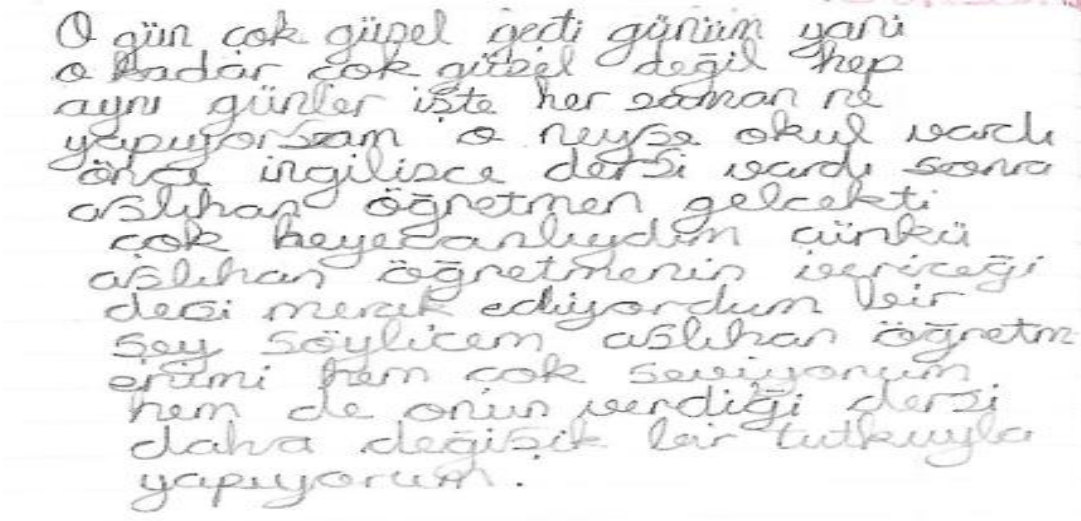 O gün çok güzel geçti günüm yani
o kadar çok güzel değil hep
aynı günler işte her zaman ne
yapıyorsam o neyse okul vardı
önce ingilizce dersi vardı sonra
aslıhan öğretmen gelcekti
çok heyecanlıydım çünkü
aslıhan öğretmenin vericeği
dersi merak ediyordum bir
şey söylicem aslıhan öğretm
enimi hem çok seviyorum
hem de onun verdiği dersi
daha değişik bir tutkuyla
yapıyorum.